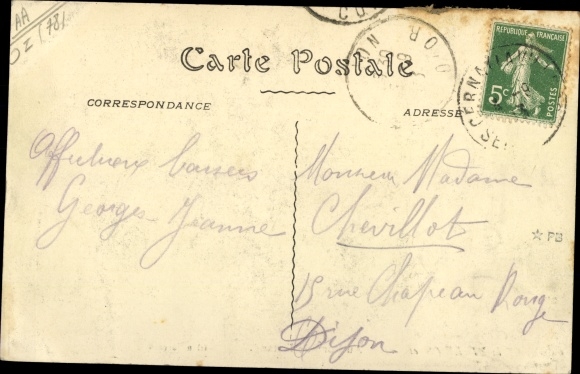 AA
OZ (78)
Carte Postale
RÉPUBLIQUE FRANÇAISE
5c
POSTES
CORRESPONDANCE
ADRESSE
Affectueux baisers
Georges - Jeanne
Monsieur Madame
Chevillot
☆ PB
15 rue Chapeau Rouge
Dijon